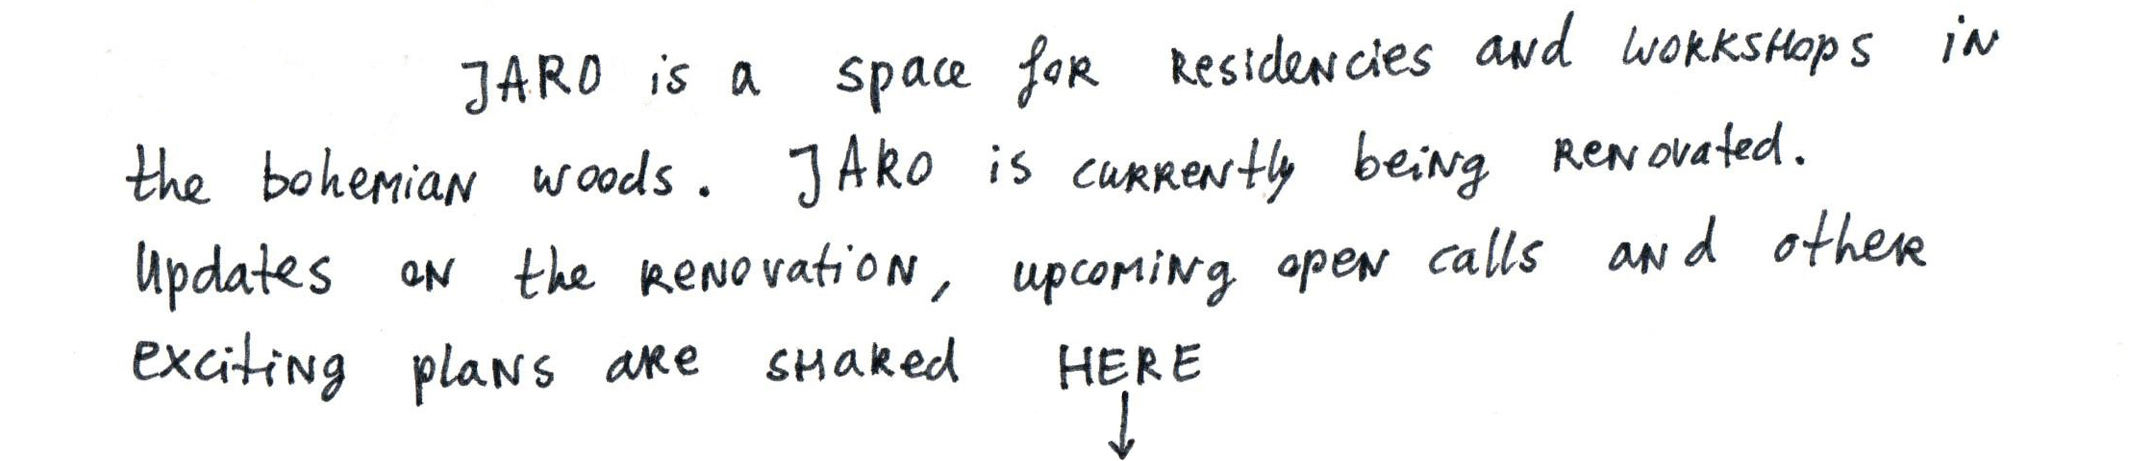 JARO is a space for residencies and workshops in
the bohemian woods. JARO is currently being renovated.
Updates on the renovation, upcoming open calls and other
exciting plans are shared HERE
↓